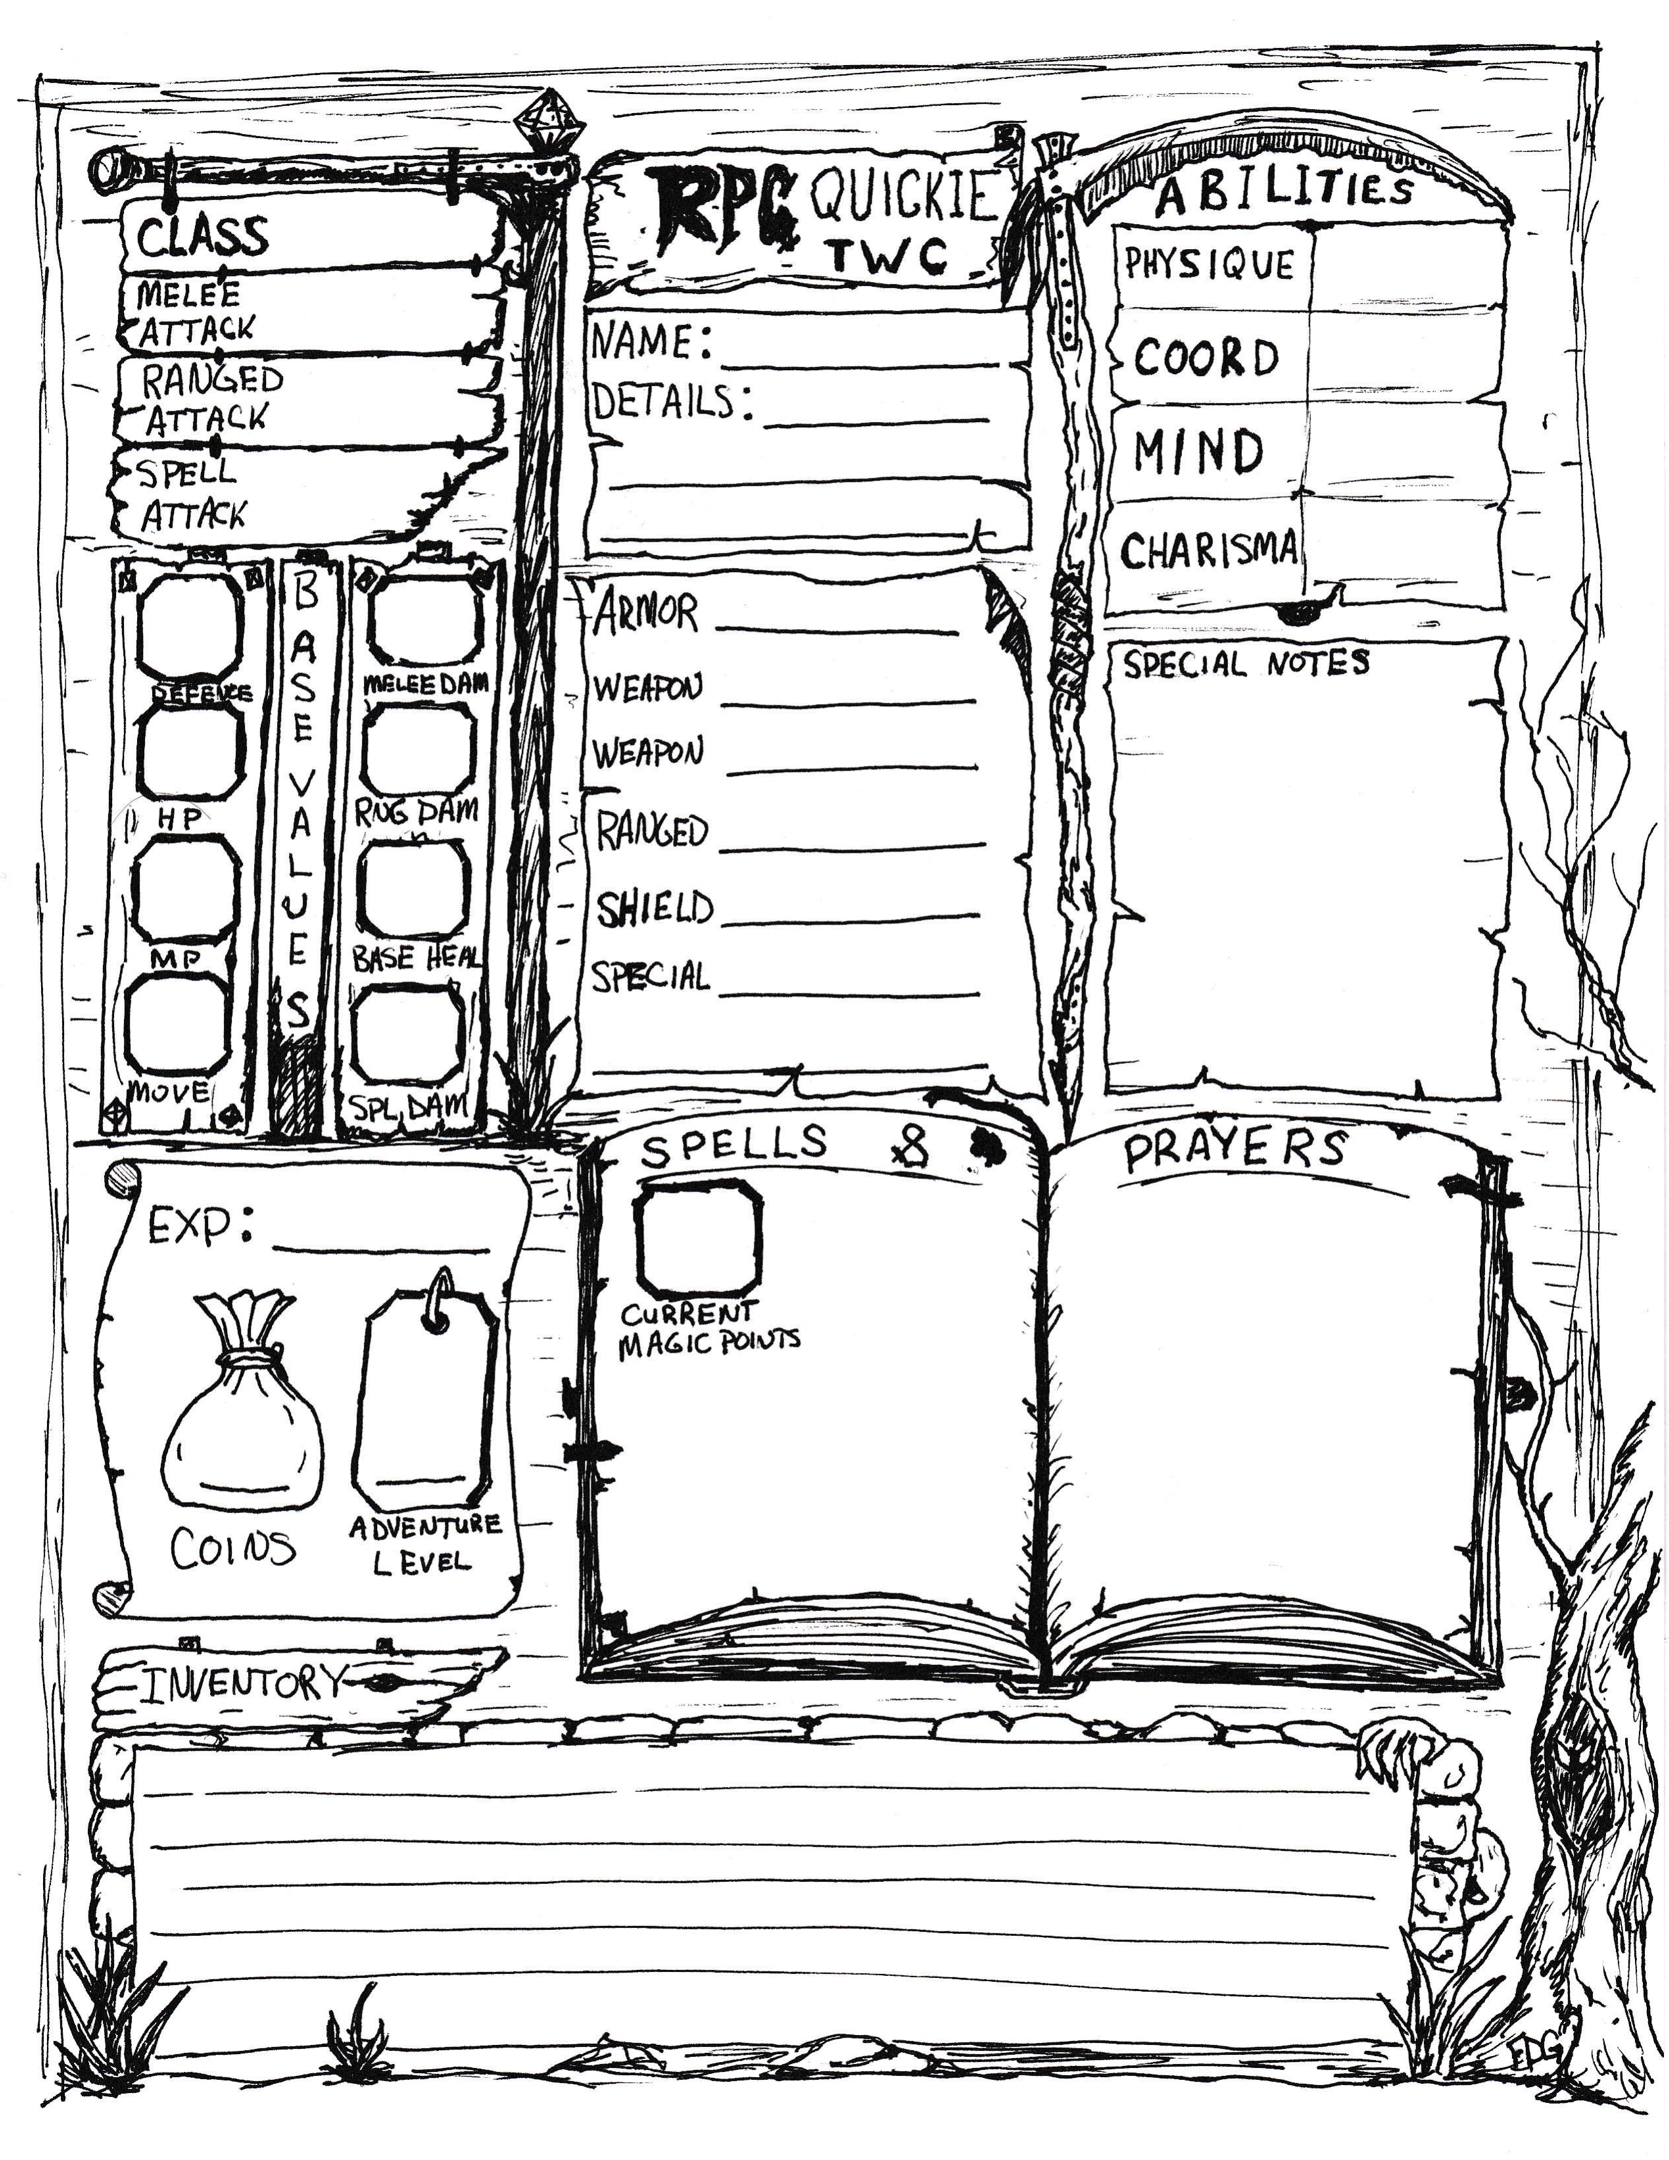 CLASS
MELEE
ATTACK
RANGED
ATTACK
SPELL
ATTACK
RPG QUICKIE
TWC
NAME:
DETAILS:
ABILITIES
PHYSIQUE
COORD
MIND
CHARISMA
DEFENCE
HP
MP
MOVE
BASE VALUES
MELEE DAM
RNG DAM
BASE HEAL
SPL DAM
ARMOR
WEAPON
WEAPON
RANGED
SHIELD
SPECIAL
SPECIAL NOTES
EXP:
COINS
ADVENTURE
LEVEL
SPELLS & PRAYERS
CURRENT
MAGIC POINTS
INVENTORY
EDG